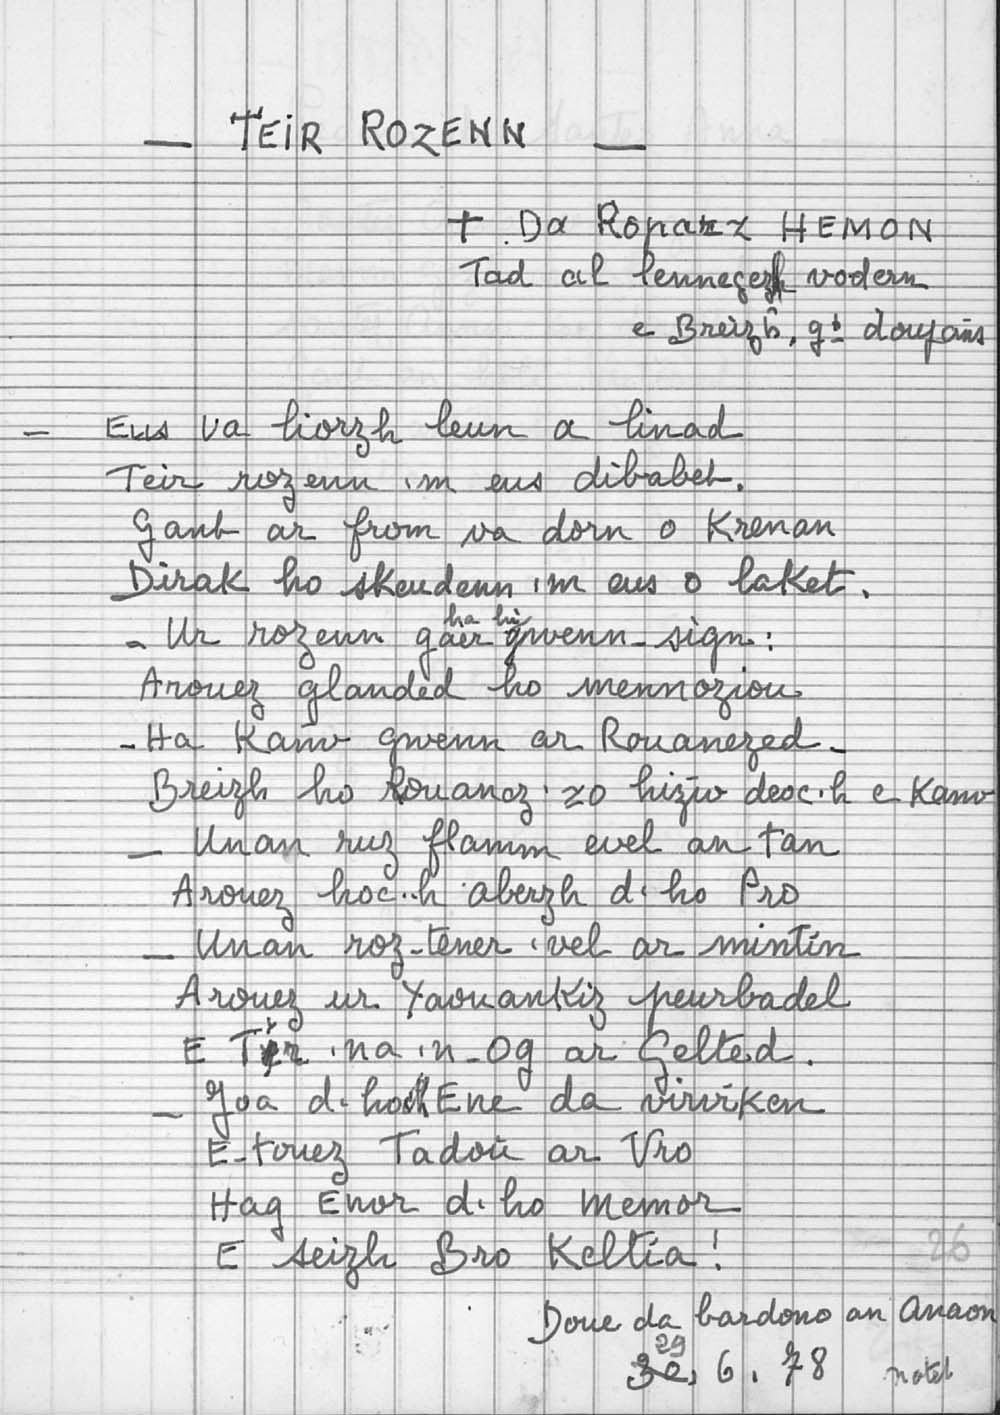 — TEIR ROZENN —
+ Da Roparz HEMON
Tad al lennegezh vodern
e Breizh, gt doujañs
— Eus va liorzh leun a linad
Teir rozenn 'm eus dibabet.
Gant ar from va dorn o Krenan
Dirak ho skeudenn 'm eus o laket.
- Ur rozenn gaer ha hi gwenn-sign:
Arouez glanded ho mennoziou
- Ha Kanv gwenn ar Rouanezed -
Breizh ho Rouanez zo hiziv deoc'h e Kanv
— Unan ruz flamm evel an tan
Arouez hoc'h aberzh d'ho Pro
— Unan roz-tener 'vel ar mintin
Arouez ur Yaouankiz peurbadel
E Tir 'na 'n-Og ar Gelted.
— Joa d'hoch Ene da virviken
E-touez Tadoù ar Vro
Hag Enor d'ho Memor
E seizh Bro Keltia!
26
Doue da bardono an Anaon
29
30, 6. 78